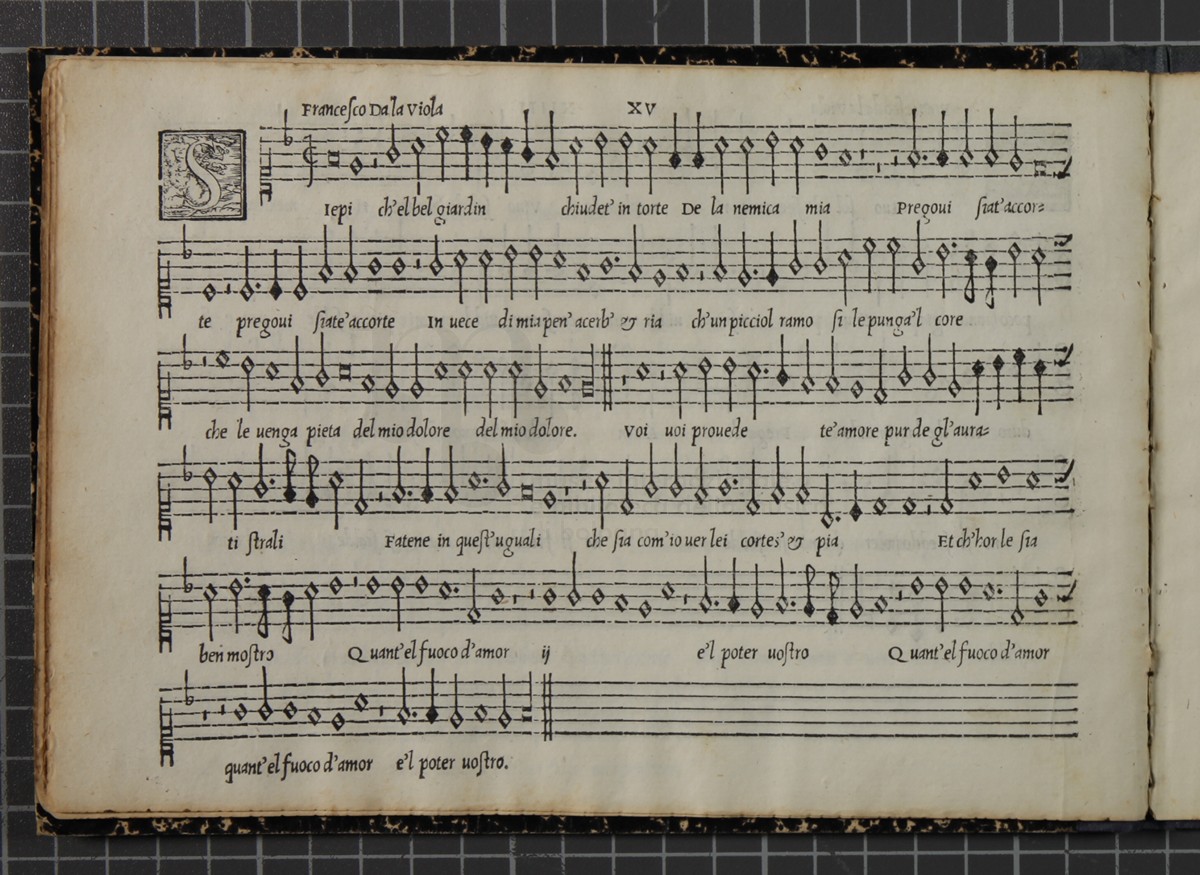 Franceſco Da la Viola XV
S Iepi ch'el bel giardin chiudet' in torte De la nemica mia Pregoui ſiat' accor⸗
te pregoui ſiate' accorte In uece di mia pen' acerb' & ria ch'un picciol ramo ſi le punga'l core
che le uenga pieta del mio dolore del mio dolore. Voi uoi prouede te' amore pur de gl'aura⸗
ti ſtrali Fatene in queſt' uguali che ſia com'io uer lei cortes' & pia Et ch'hor le ſia
ben moſtro Quant'el fuoco d'amor ij e'l poter uoſtro Quant'el fuoco d'amor
quant'el fuoco d'amor e'l poter uoſtro.